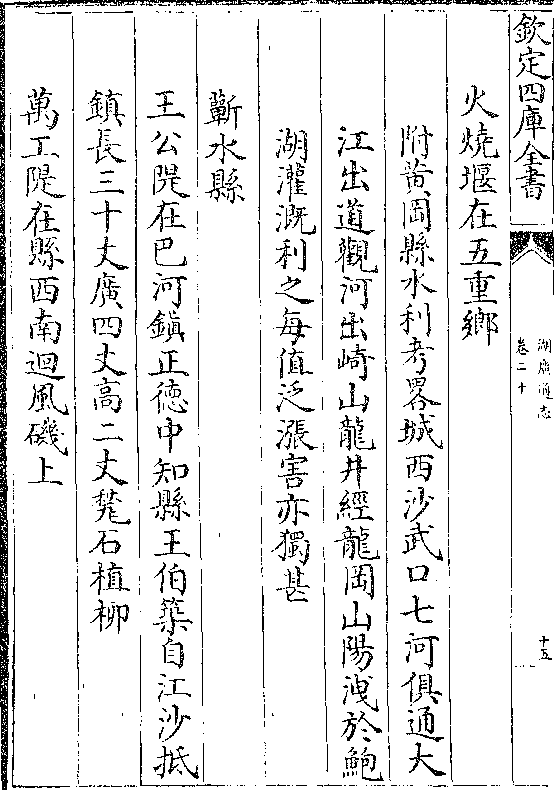 欽定四庫全書
湖廣通志
卷二十
十五
火燒堰在五重鄉
附黄岡縣水利考畧城西沙武口七河俱通大
江出道觀河出崎山龍井經龍岡山陽洩於鮑
湖灌溉利之每值泛漲害亦獨甚
蘄水縣
王公隄在巴河鎮正徳中知縣王伯築自江沙抵
鎮長三十丈廣四丈高二丈甃石植柳
萬工隄在縣西南迴風磯上